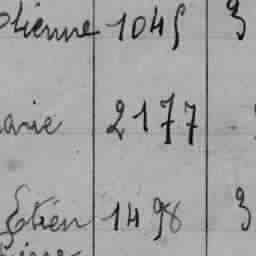 tienne 1045 3
arie 2177
Etien 1498 3